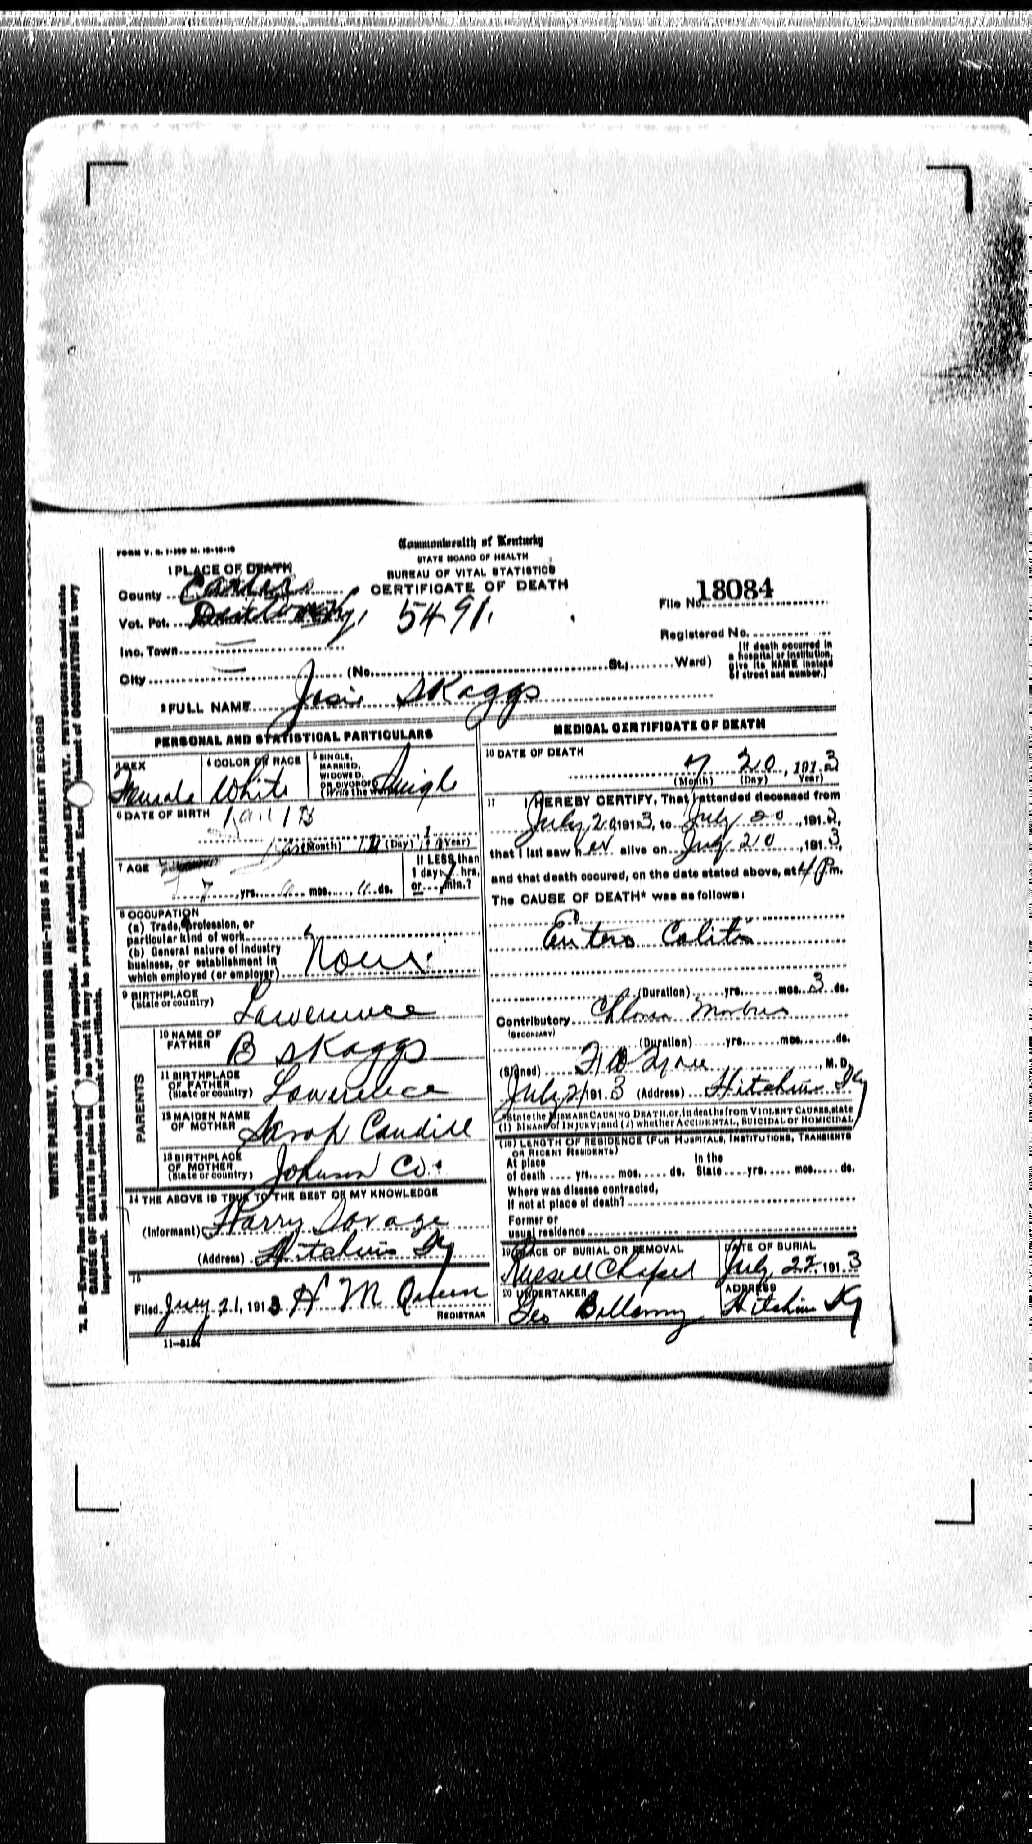 FORM V. S. 1-
Commonwealth of Kentucky
STATE BOARD OF HEALTH
BUREAU OF VITAL STATISTICS
CERTIFICATE OF DEATH
1 PLACE OF DEATH
County Carter
Vot. Pct. 5491.
Inc. Town
City (No. St.; Ward)
File No. 18084
Registered No.
(If death occurred in a hospital or institution, give its NAME instead of street and number.)
2 FULL NAME Josie Skaggs
PERSONAL AND STATISTICAL PARTICULARS
3 SEX 4 COLOR OR RACE 5 SINGLE, MARRIED, WIDOWED, OR DIVORCED (Write the word)
Female White Single
6 DATE OF BIRTH
(Month) (Day) (Year)
7 AGE
7 yrs. mos. 11 ds.
If LESS than 1 day, hrs. or min.?
8 OCCUPATION
(a) Trade, profession, or
particular kind of work
(b) General nature of industry
business, or establishment in
which employed (or employer) None
9 BIRTHPLACE
(State or country) Lawrence
PARENTS
10 NAME OF FATHER B Skaggs
11 BIRTHPLACE OF FATHER (State or country) Lawrence
12 MAIDEN NAME OF MOTHER Sarah
13 BIRTHPLACE OF MOTHER (State or country) Johnson Co.
14 THE ABOVE IS TRUE TO THE BEST OF MY KNOWLEDGE
(Informant) Harry Savage
(Address) Hitchins Ky
15
Filed July 21, 1913 H M
REGISTRAR
11-
MEDICAL CERTIFICATE OF DEATH
16 DATE OF DEATH
7 20, 1913
(Month) (Day) (Year)
17 I HEREBY CERTIFY, That I attended deceased from
July 20 1913, to July 20, 1913,
that I last saw her alive on July 20, 1913,
and that death occured, on the date stated above, at 4 P.m.
The CAUSE OF DEATH* was as follows:
Entero Colitis
(Duration) yrs. mos. 3 ds.
Contributory Cholera Morbus
(SECONDARY)
(Duration) yrs. mos. ds.
(Signed) M.D.
July 21 1913 (Address) Hitchins Ky
*State the DISEASE CAUSING DEATH, or, in deaths from VIOLENT CAUSES, state
(1) MEANS OF INJURY; and (2) whether ACCIDENTAL, SUICIDAL OR HOMICIDAL
18 LENGTH OF RESIDENCE (FOR HOSPITALS, INSTITUTIONS, TRANSIENTS
OR RECENT RESIDENTS)
At place In the
of death yrs. mos. ds. State yrs. mos. ds.
Where was disease contracted,
If not at place of death?
Former or
usual residence
19 PLACE OF BURIAL OR REMOVAL DATE OF BURIAL
Russell Chapel July 22, 1913
20 UNDERTAKER ADDRESS
Geo Bellomy Hitchins Ky
WRITE PLAINLY, WITH UNFADING INK-THIS IS A PERMANENT RECORD